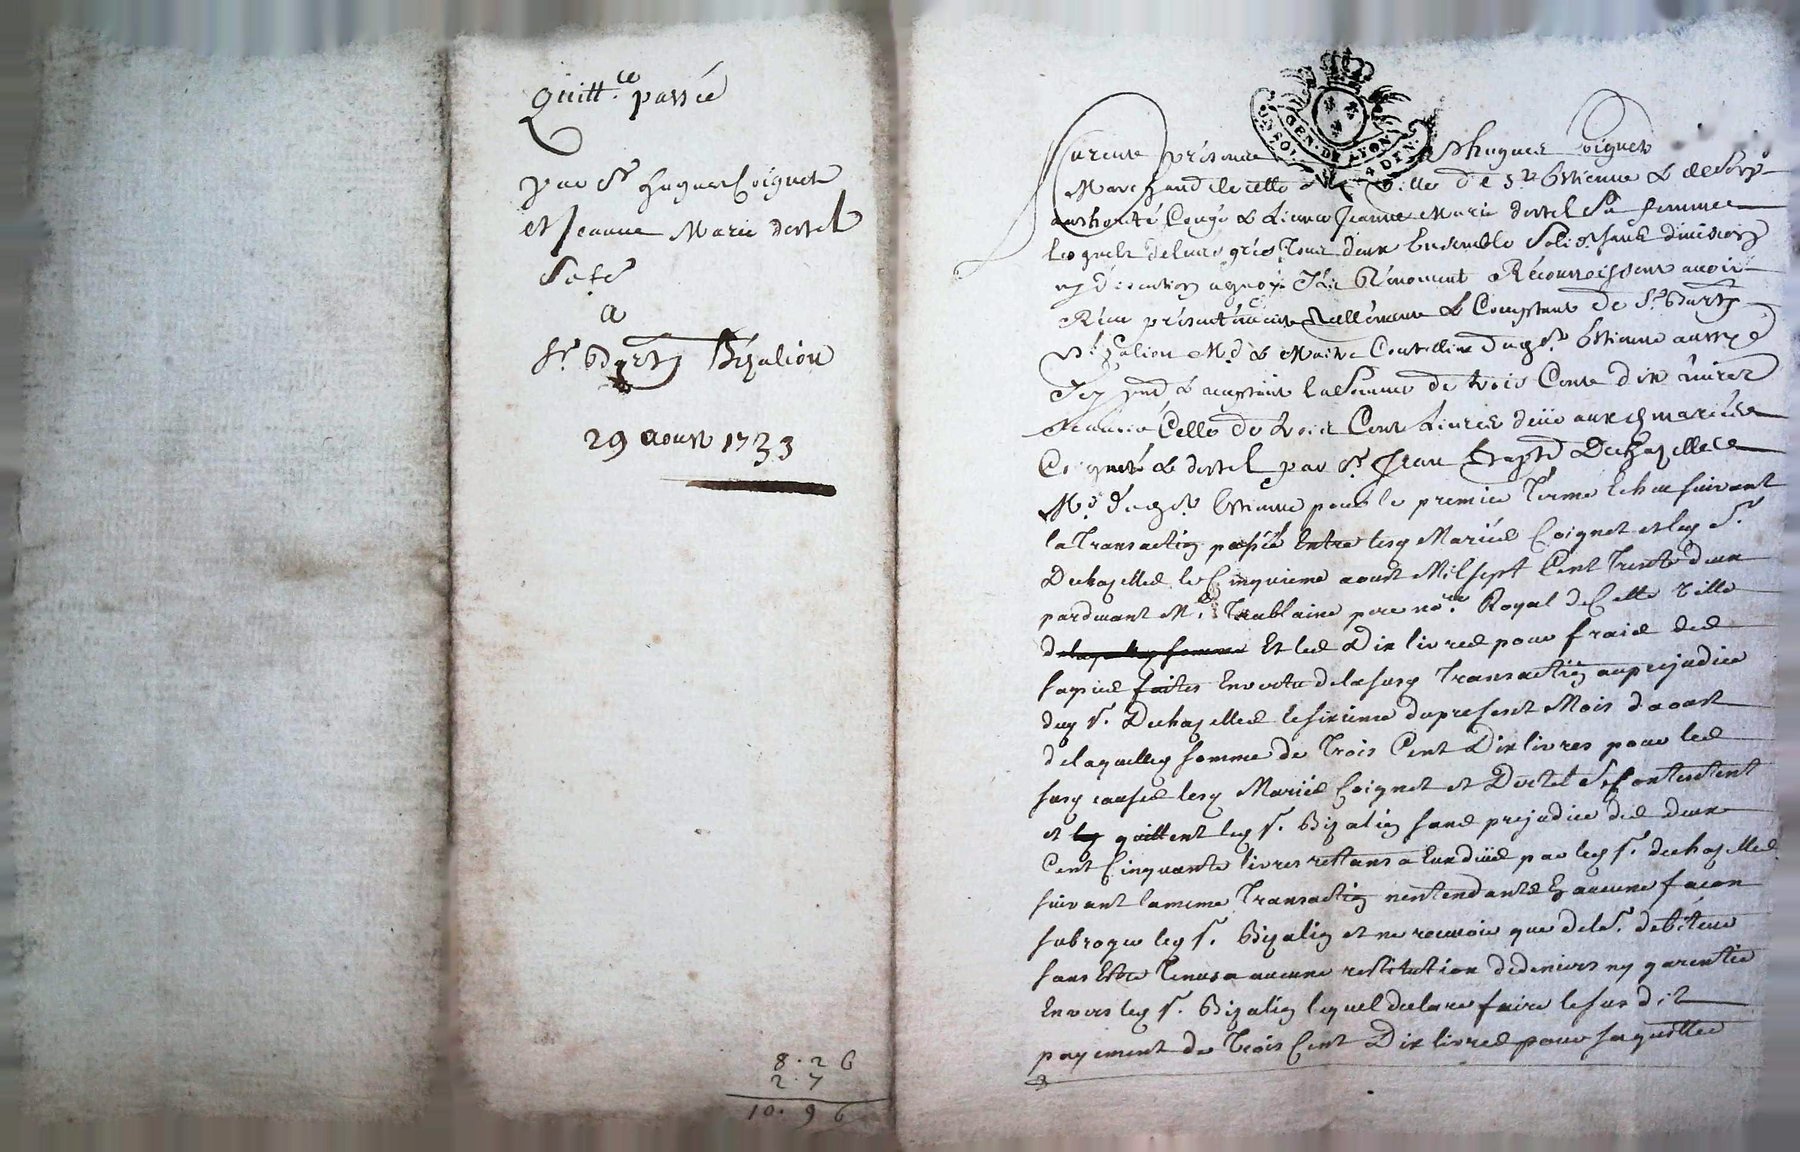 Quitt.ce passée
par Sr hugues Coignet
et Jeanne Marie dertel
sa fe
a
Sr Barth Bizalion
29 aoust 1733
8. 2 6
2. 7
10. 9 6
GEN. DE LYON
furent présents Sr hugues Coignet
Marchand de cette ville de St Estienne & de Son
authorité Congé & Licence Jeanne Marie dertel Sa femme
lesquels de leurs grés tous deux Ensemble solid.t sans division
ny discution
présentement Réellement & Comptant de Sr Barth
Bizalion Md & Maitre Coutellier dud St Estienne
acceptant la Somme de trois Cents dix livres
Celle de trois Cent Livres deüe aux d mariés
Coignet & dertel par Sr Jean Bapte Dechazelles
Md dud St Estienne pour le premier terme Echu suivant
la Transaction passée Entre lesd Mariés Coignet et led Sr
Dechazelles le Cinquieme aoust Mil sept Cent Trente deux
pardevant Me Taublaine pere nore Royal de Cette ville
Et les Dix livres pour frais des
saisies faites En vertu de la susd Transaction au prejudice
dud Sr. Dechazelles le sixieme du present Mois daoust
de laquelle somme de Trois Cent Dix livres pour les
susd causes lesd Mariés Coignet et Dertel se Contentent
et quittent led Sr. Bizalion sans prejudice des deux
Cent Cinquante livres restans a Eux düe par led Sr. dechazelles
suivant la meme Transaction nentendants En aucune facon
subroger led Sr. Bizalion et ne recevoir que de le Sr. debiteur
sans Estre Tenus a aucune restitution de deniers ny garentie
Envers led Sr. Bizalion lequel declare faire le susdit
payement de Trois Cent Dix livres pour